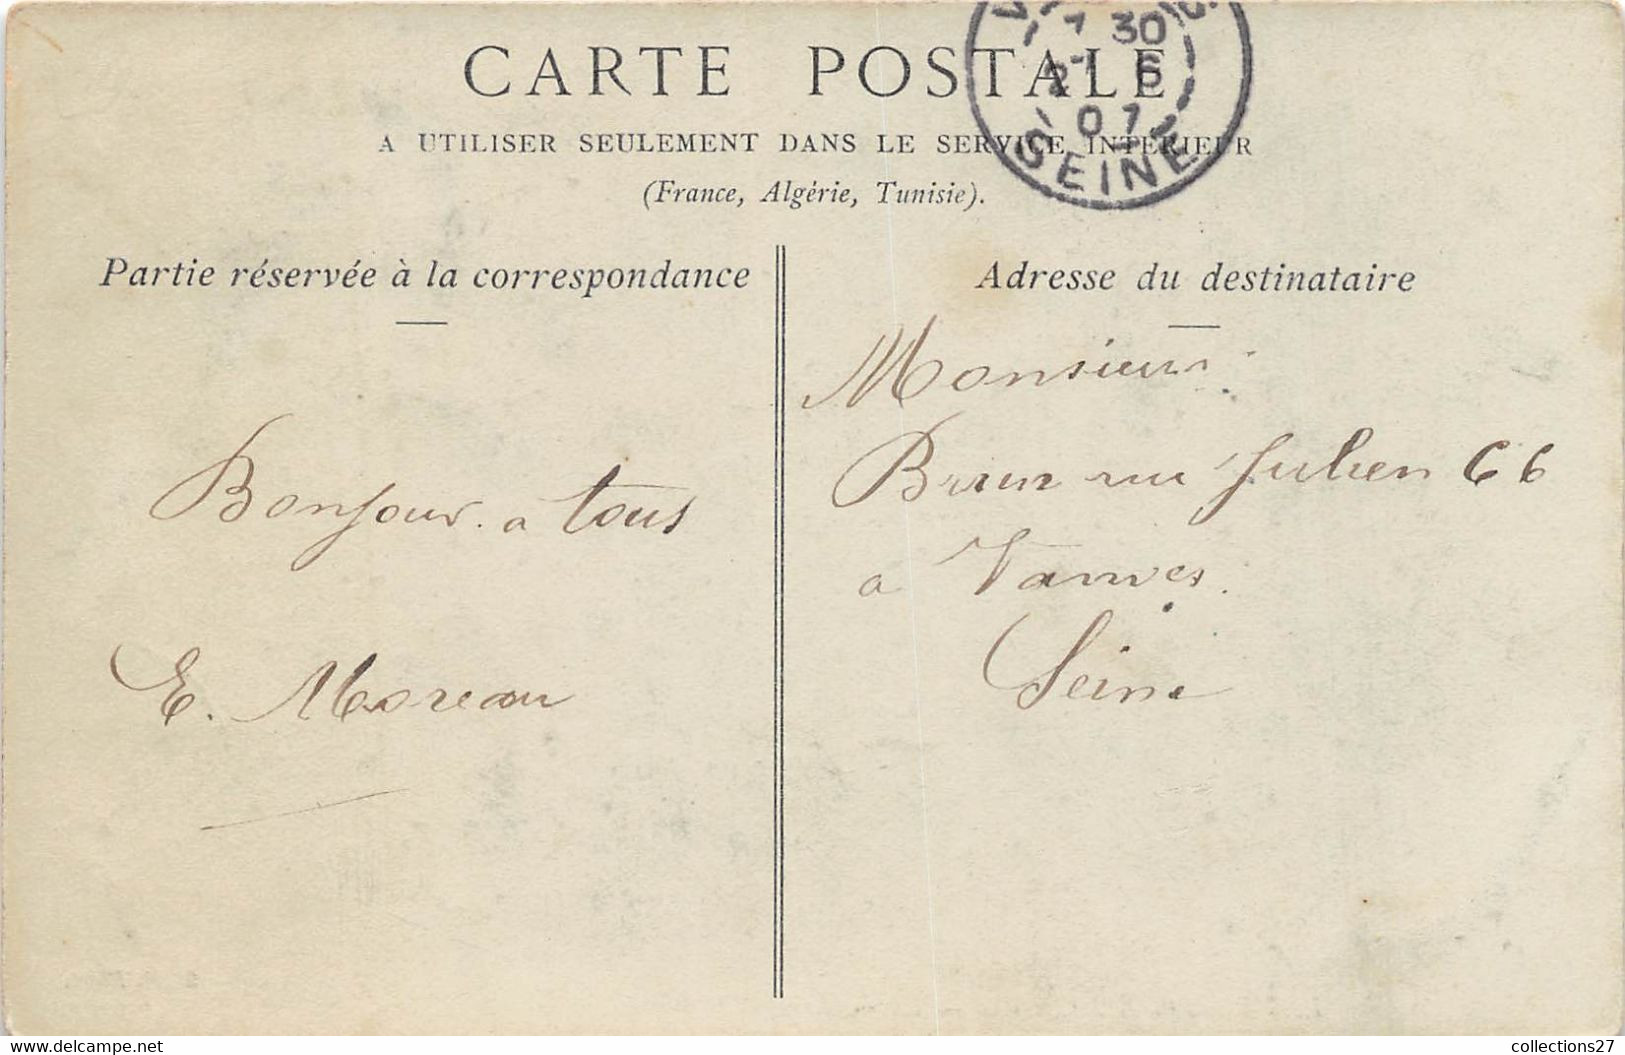 CARTE POSTALE
A UTILISER SEULEMENT DANS LE SERVICE INTÉRIEUR
(France, Algérie, Tunisie).
7 30
2 - 6
07
SEINE
Partie réservée à la correspondance
Adresse du destinataire
Bonjour a tous
E. Moreau
Monsieur
rue Julien 66
a Vanves
Seine
collections27